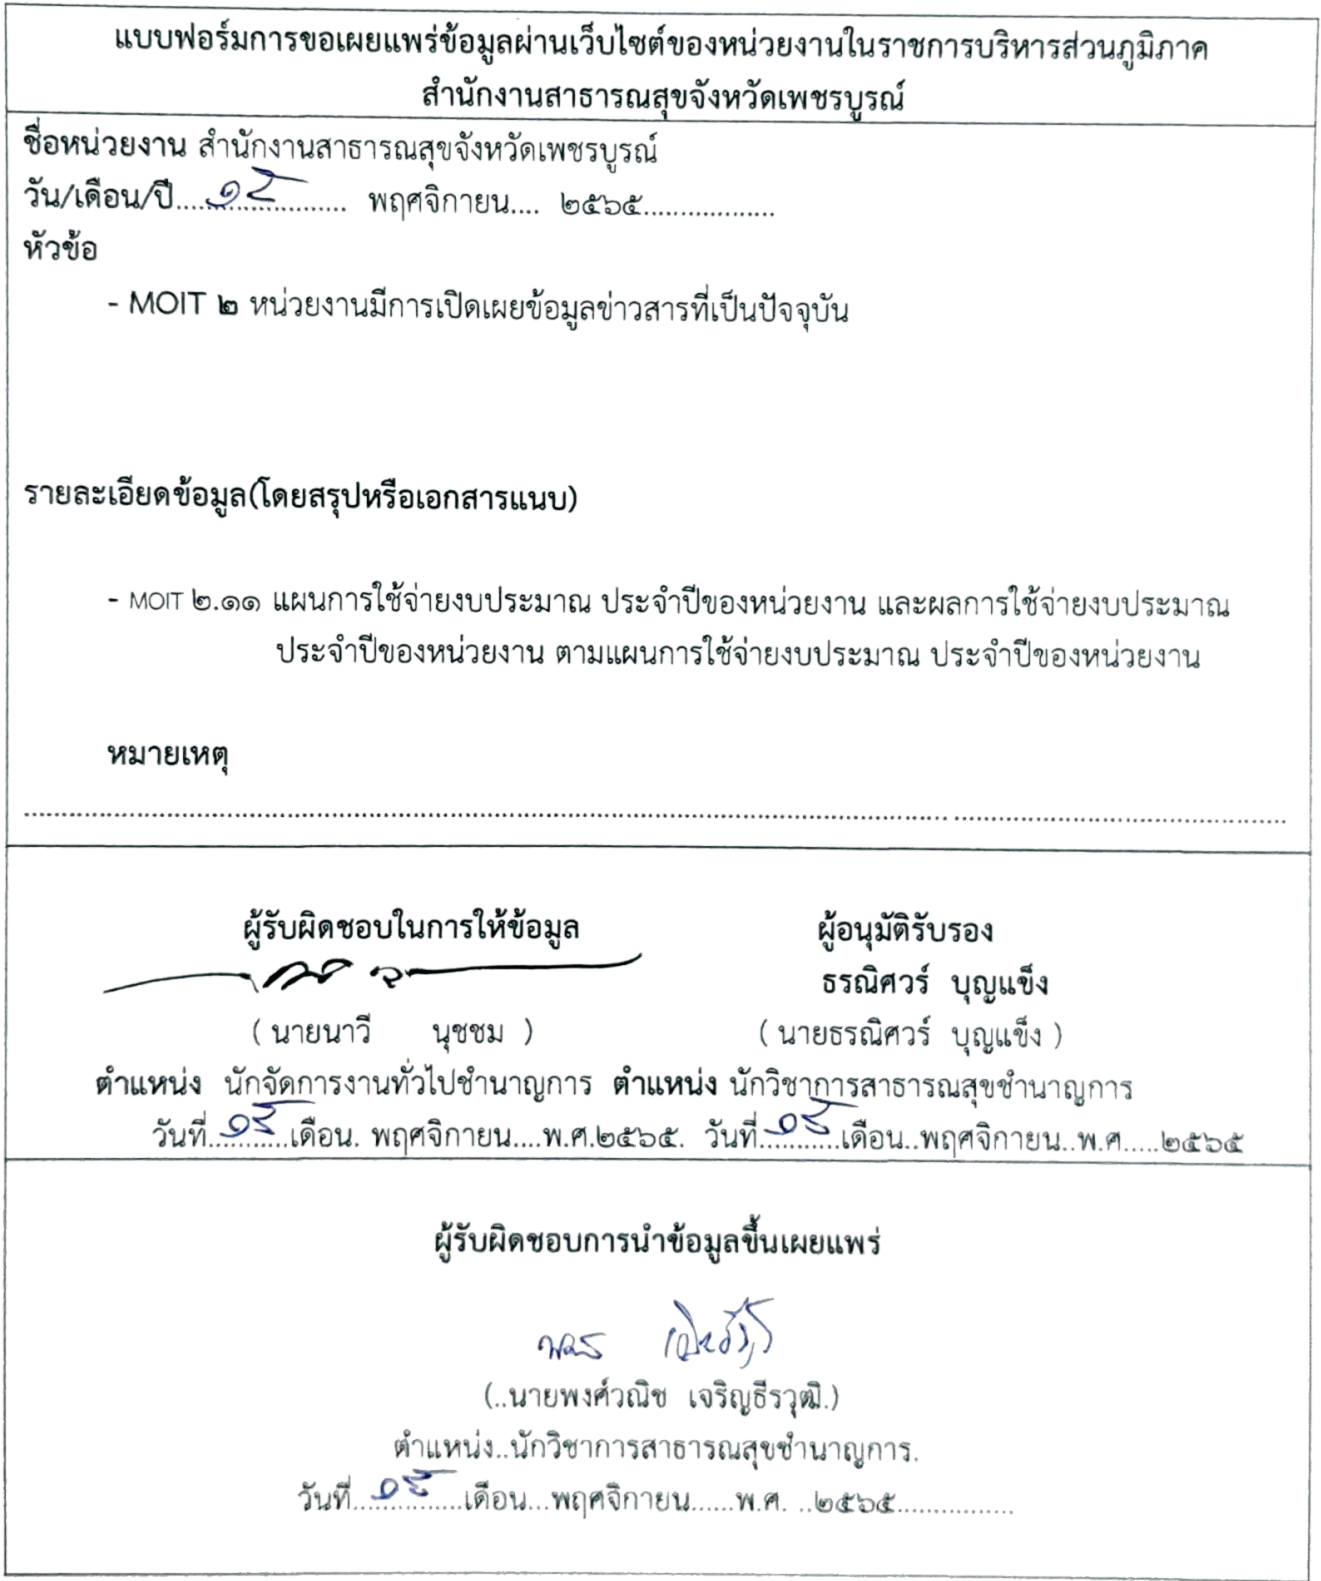 แบบฟอร์มการขอเผยแพร่ข้อมูลผ่านเว็บไซต์ของหน่วยงานในราชการบริหารส่วนภูมิภาค
สำนักงานสาธารณสุขจังหวัดเพชรบูรณ์
ชื่อหน่วยงาน สำนักงานสาธารณสุขจังหวัดเพชรบูรณ์
วัน/เดือน/ปี....................... พฤศจิกายน.... ๒๕๖๕..................
หัวข้อ
- MOIT ๒ หน่วยงานมีการเปิดเผยข้อมูลข่าวสารที่เป็นปัจจุบัน
รายละเอียดข้อมูล(โดยสรุปหรือเอกสารแนบ)
- MOIT ๒.๑๑ แผนการใช้จ่ายงบประมาณ ประจำปีของหน่วยงาน และผลการใช้จ่ายงบประมาณ
ประจำปีของหน่วยงาน ตามแผนการใช้จ่ายงบประมาณ ประจำปีของหน่วยงาน
หมายเหตุ
ผู้รับผิดชอบในการให้ข้อมูล ผู้อนุมัติรับรอง
ธรณิศวร์ บุญแข็ง
( นายนาวี นุชชม ) ( นายธรณิศวร์ บุญแข็ง )
ตำแหน่ง นักจัดการงานทั่วไปชำนาญการ ตำแหน่ง นักวิชาการสาธารณสุขชำนาญการ
วันที่...........เดือน. พฤศจิกายน....พ.ศ.๒๕๖๕. วันที่...........เดือน..พฤศจิกายน..พ.ศ.....๒๕๖๕
ผู้รับผิดชอบการนำข้อมูลขึ้นเผยแพร่
(..นายพงศ์วณิช เจริญธีรวุฒิ.)
ตำแหน่ง..นักวิชาการสาธารณสุขชำนาญการ.
วันที่...............เดือน...พฤศจิกายน......พ.ศ. ..๒๕๖๕................